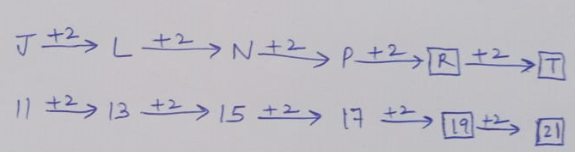 J +2→ L +2→ N +2→ P +2→ R +2→ T
11 +2→ 13 +2→ 15 +2→ 17 +2→ 19 +2→ 21